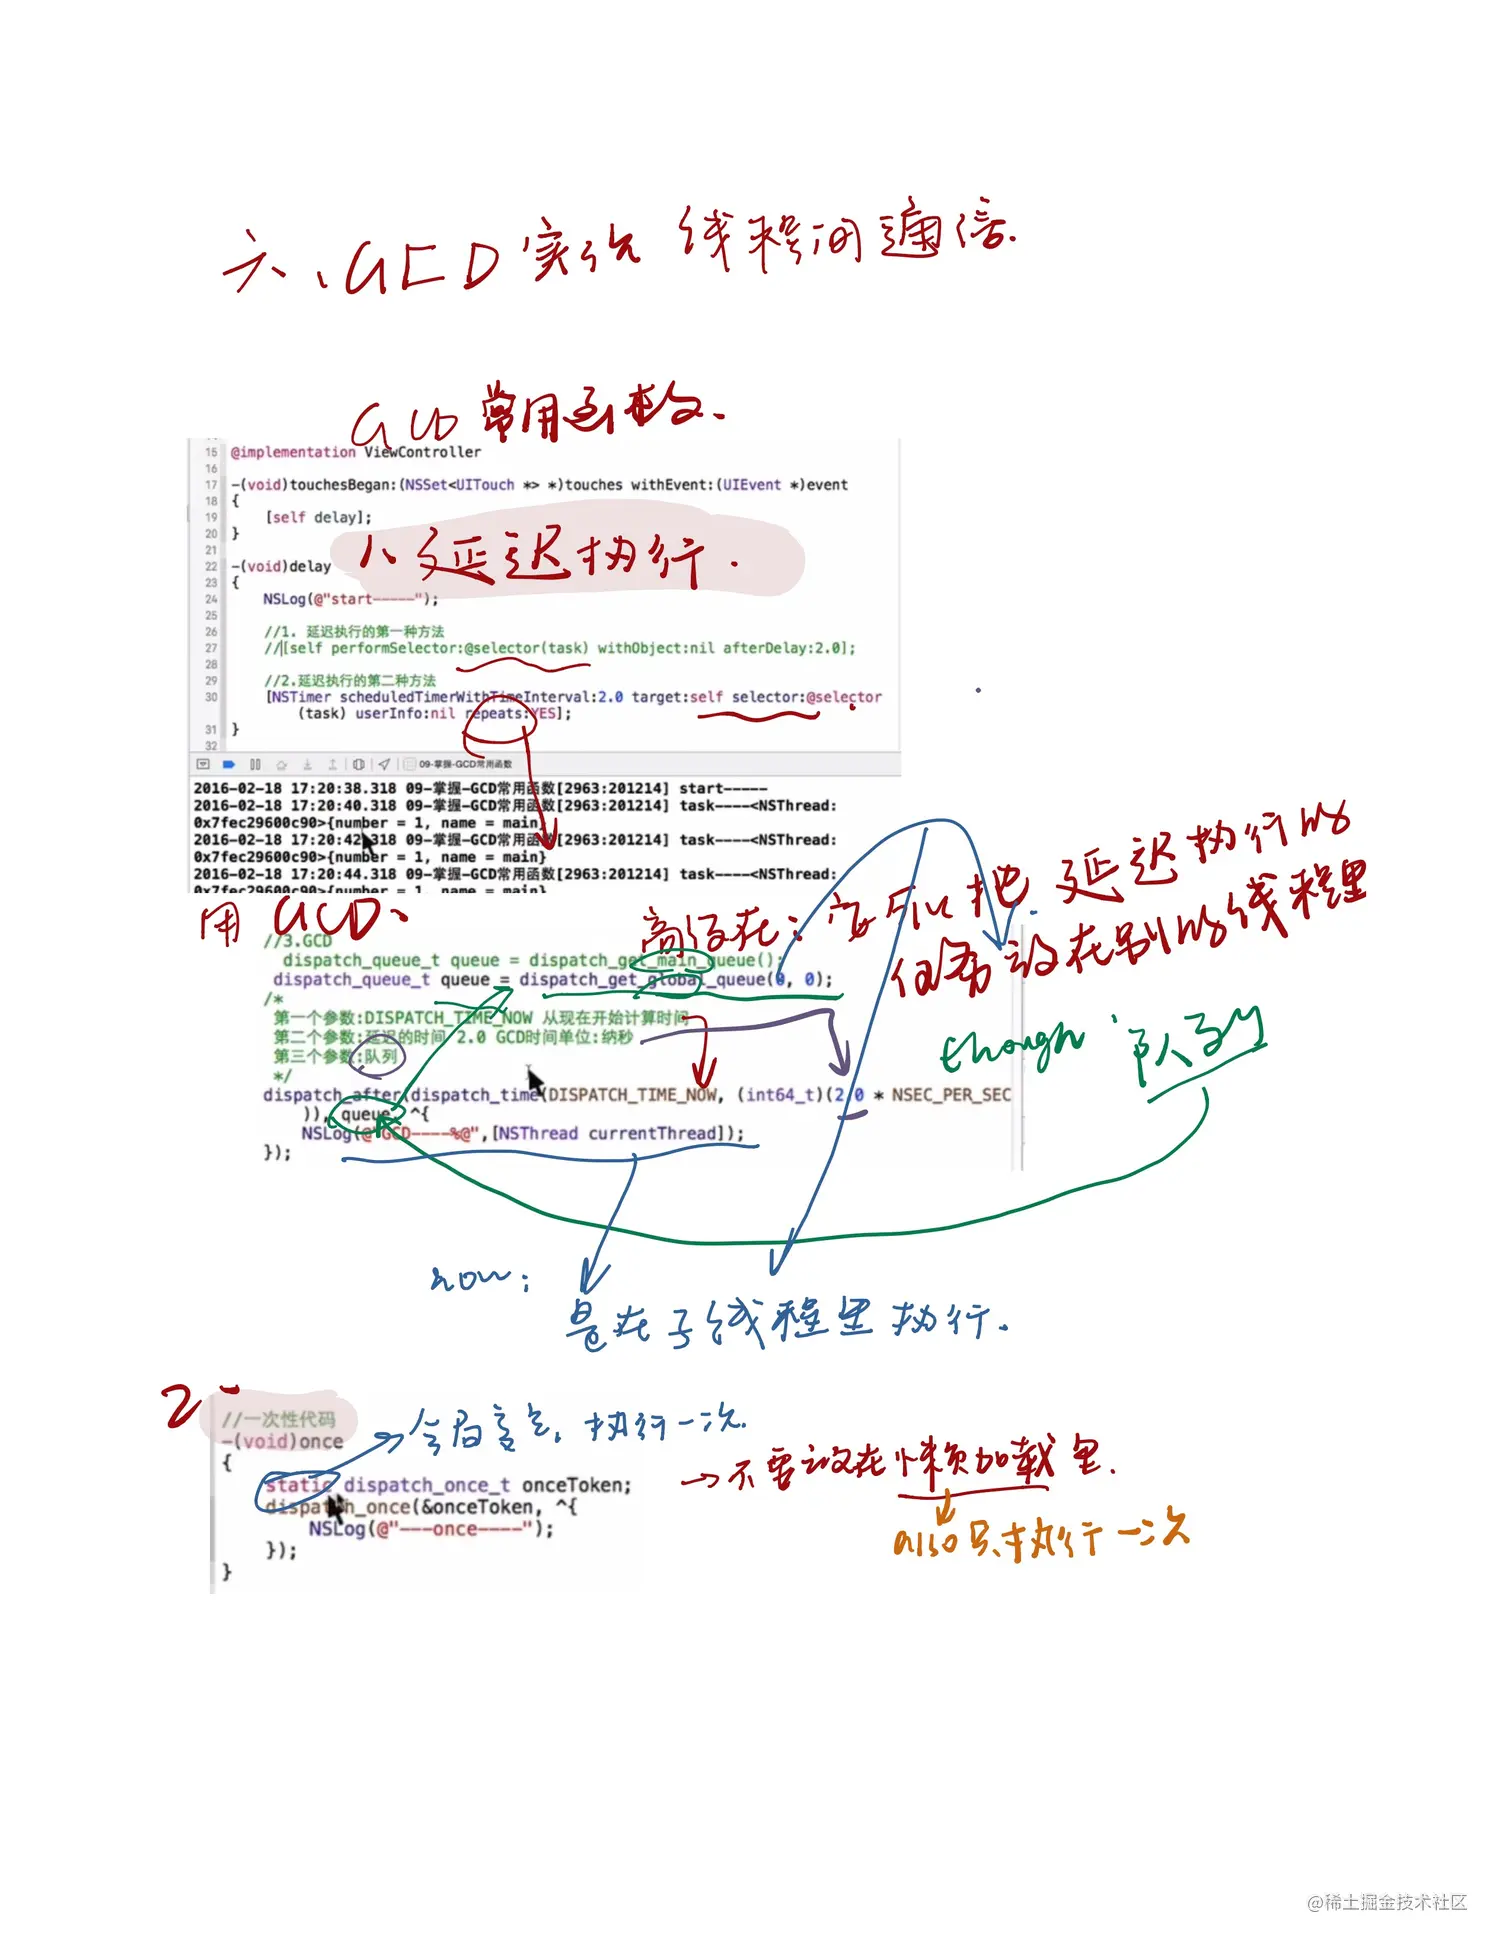 六、GCD 实现 线程间通信.
GCD 常用函数.
15 @implementation ViewController
16
17 -(void)touchesBegan:(NSSet<UITouch *> *)touches withEvent:(UIEvent *)event
18 {
19 [self delay];
20 }
21
1、延迟执行.
22 -(void)delay
23 {
24 NSLog(@"start-----");
25
26 //1. 延迟执行的第一种方法
27 //[self performSelector:@selector(task) withObject:nil afterDelay:2.0];
28
29 //2.延迟执行的第二种方法
30 [NSTimer scheduledTimerWithTimeInterval:2.0 target:self selector:@selector
(task) userInfo:nil repeats:YES];
31 }
32
09-掌握-GCD常用函数
2016-02-18 17:20:38.318 09-掌握-GCD常用函数[2963:201214] start-----
2016-02-18 17:20:40.318 09-掌握-GCD常用函数[2963:201214] task----<NSThread:
0x7fec29600c90>{number = 1, name = main}
2016-02-18 17:20:42.318 09-掌握-GCD常用函数[2963:201214] task----<NSThread:
0x7fec29600c90>{number = 1, name = main}
2016-02-18 17:20:44.318 09-掌握-GCD常用函数[2963:201214] task----<NSThread:
0x7fec29600c90>{number = 1, name = main}
用 GCD、
高级在：它可以把 延迟执行的
任务 放在别的线程里
//3.GCD
dispatch_queue_t queue = dispatch_get_main_queue();
dispatch_queue_t queue = dispatch_get_global_queue(0, 0);
/*
第一个参数:DISPATCH_TIME_NOW 从现在开始计算时间
第二个参数:延迟的时间 2.0 GCD时间单位:纳秒
第三个参数:队列
*/
though 队列
dispatch_after(dispatch_time(DISPATCH_TIME_NOW, (int64_t)(2.0 * NSEC_PER_SEC
)), queue, ^{
NSLog(@"GCD----%@",[NSThread currentThread]);
});
now:
是在子线程里执行.
2.
//一次性代码
-(void)once
{
static dispatch_once_t onceToken;
dispatch_once(&onceToken, ^{
NSLog(@"---once----");
});
}
→ 执行一次.
→不要放在懒加载里.
also只执行一次
@稀土掘金技术社区